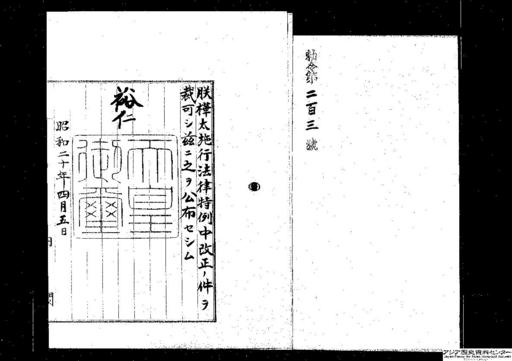 勅令第二百三號
朕樺太施行法律特例中改正ノ件ヲ
裁可シ茲ニ之ヲ公布セシム
裕仁
天皇
御璽
昭和二十年四月五日
アジア歴史資料センター